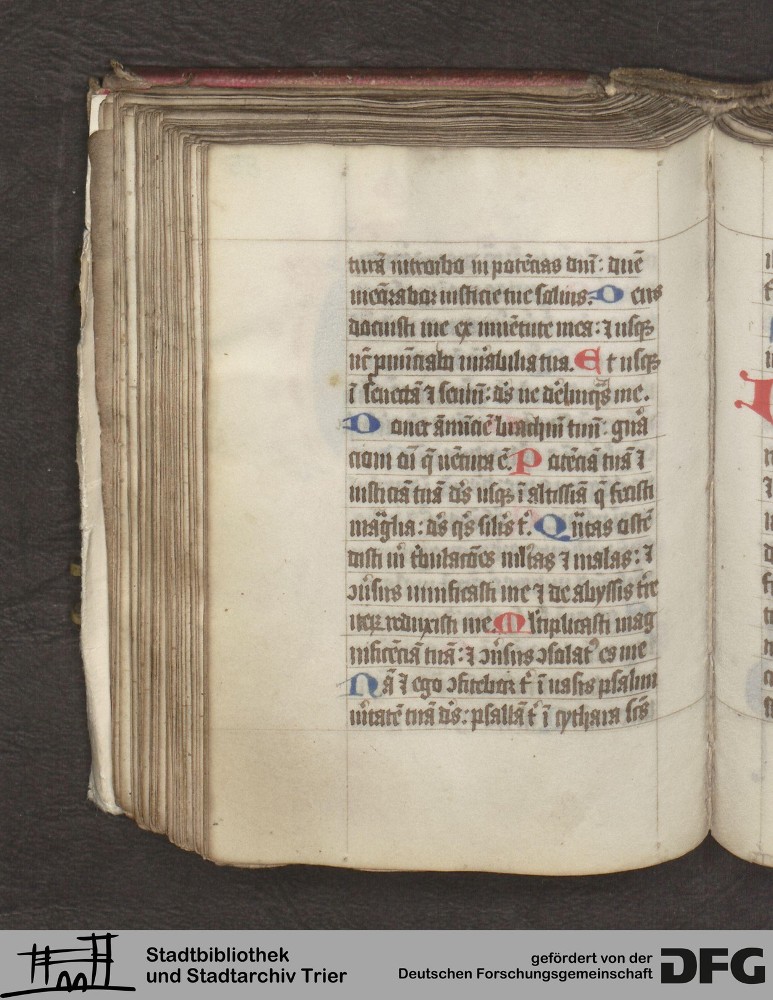 turā introibo in potēcias dn̄i : dn̄e
memōrabor iusticie tue solius. Deus
docuisti me ex iuuētute mea : ⁊ usqꝫ
nūc pnūciabo mirabilia tua. Et usqꝫ
ī senectā ⁊ seniū : ds̄ ne dēlinqͣs me.
Donec ānūciē brachiū tuū : gnāͣ
cioni oī q̄ uētura ē. Potēciā tuā ⁊
iusticiā tuā ds̄ usqꝫ ī altissīa q̄ fecisti
magͣlia : ds̄ qͥs silīs t'. Qͣntas ostē
disti m' t'bulacōes m'ltas ⁊ malas : ⁊
ꝯu'sus uiuificasti me ⁊ de abyssis t're
iteꝝ reduxisti me Mltiplicasti mag
nificēciā tuā : ⁊ ꝯu'sus ꝯsolat' es me
Nā ⁊ ego ꝯfitebor t' ī uasis psalmi
u'itatē tuā ds̄ : psallā t' ī cythara scs̄
Stadtbibliothek
und Stadtarchiv Trier
gefördert von der
Deutschen Forschungsgemeinschaft
DFG